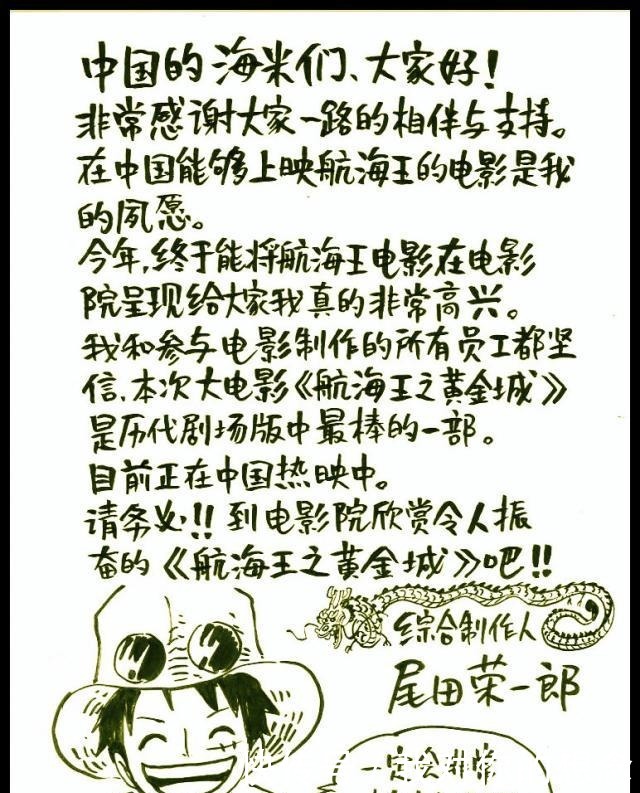 中国的海米们、大家好!
非常感谢大家一路的相伴与支持。
在中国能够上映航海王的电影是我
的夙愿。
今年,终于能将航海王电影在电影
院呈现给大家我真的非常高兴。
我和参与电影制作的所有员工都坚
信,本次大电影《航海王之黄金城》
是历代剧场版中最棒的一部。
目前正在中国热映中。
请务必!!到电影院欣赏令人振
奋的《航海王之黄金城》吧!!
综合制作人
尾田荣一郎
一定会